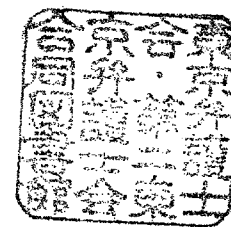 東京弁護士
会・第二東
京弁護士会
合同圖書館